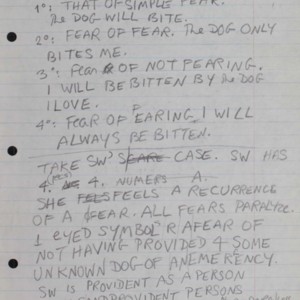 1°: THAT OF SIMPLE FEAR.
The DOG WILL BITE.
2°: FEAR OF FEAR. The DOG ONLY
BITES ME.
3°: Fear OF NOT FEARING.
I WILL BE BITTEN BY the DOG
I LOVE.
4°: FeAR OF FEARING. I WILL
ALWAYS BE BITTEN.
TAKE SW'S SCARE CASE. SW HAS
4. 4. NUMERS A.
SHE FEELS A RECURRENCE
OF A FEAR. ALL FEARS PARALYZE.
1 EYED SYMBOL R A FEAR OF
NOT HAVING PROVIDED 4 SOME
UNKNOWN DOG-OF AN EMERENCY.
SW IS PROVIDENT AS A PERSON
PERSONS